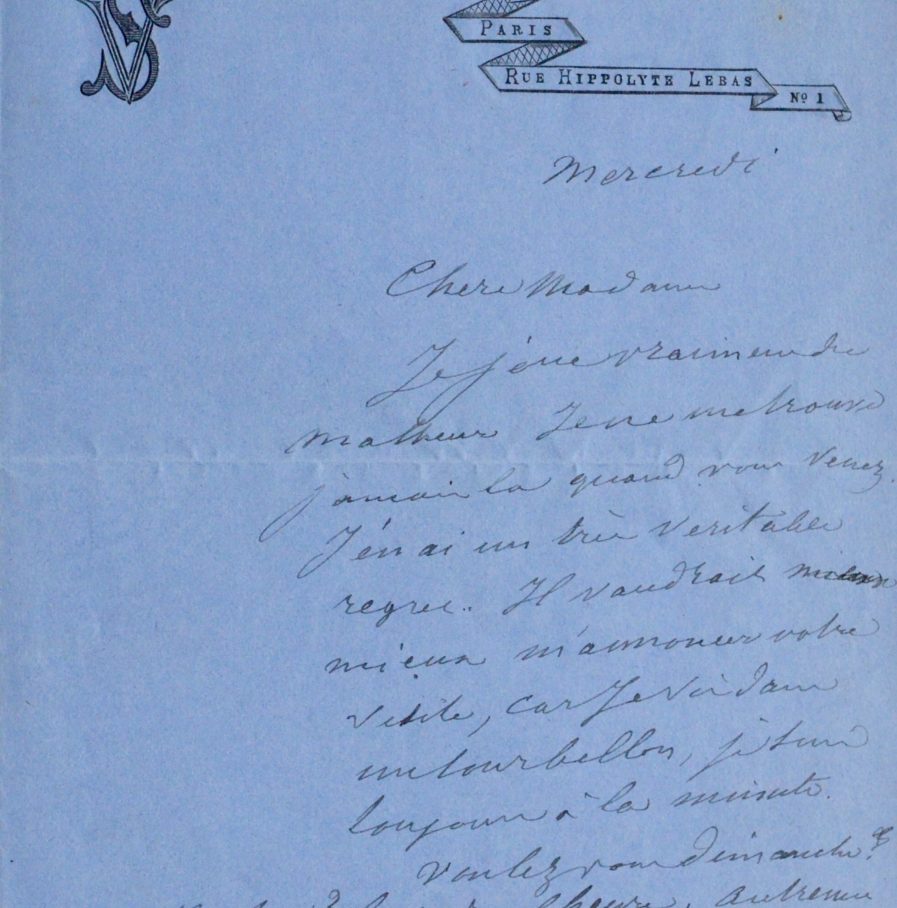 PARIS
RUE HIPPOLYTE LEBAS
No 1
Mercredi
Chere Madame
Je joue vraiment de
malheur Je ne me trouve
jamais la quand vous venez.
J'en ai un très veritable
regret. Il vaudrait mieux
mieux m'annoncer votre
visite, car Je vis dans
un tourbillon, je suis
toujours à la minute.
Voulez vous dimanche?
heure, autrement